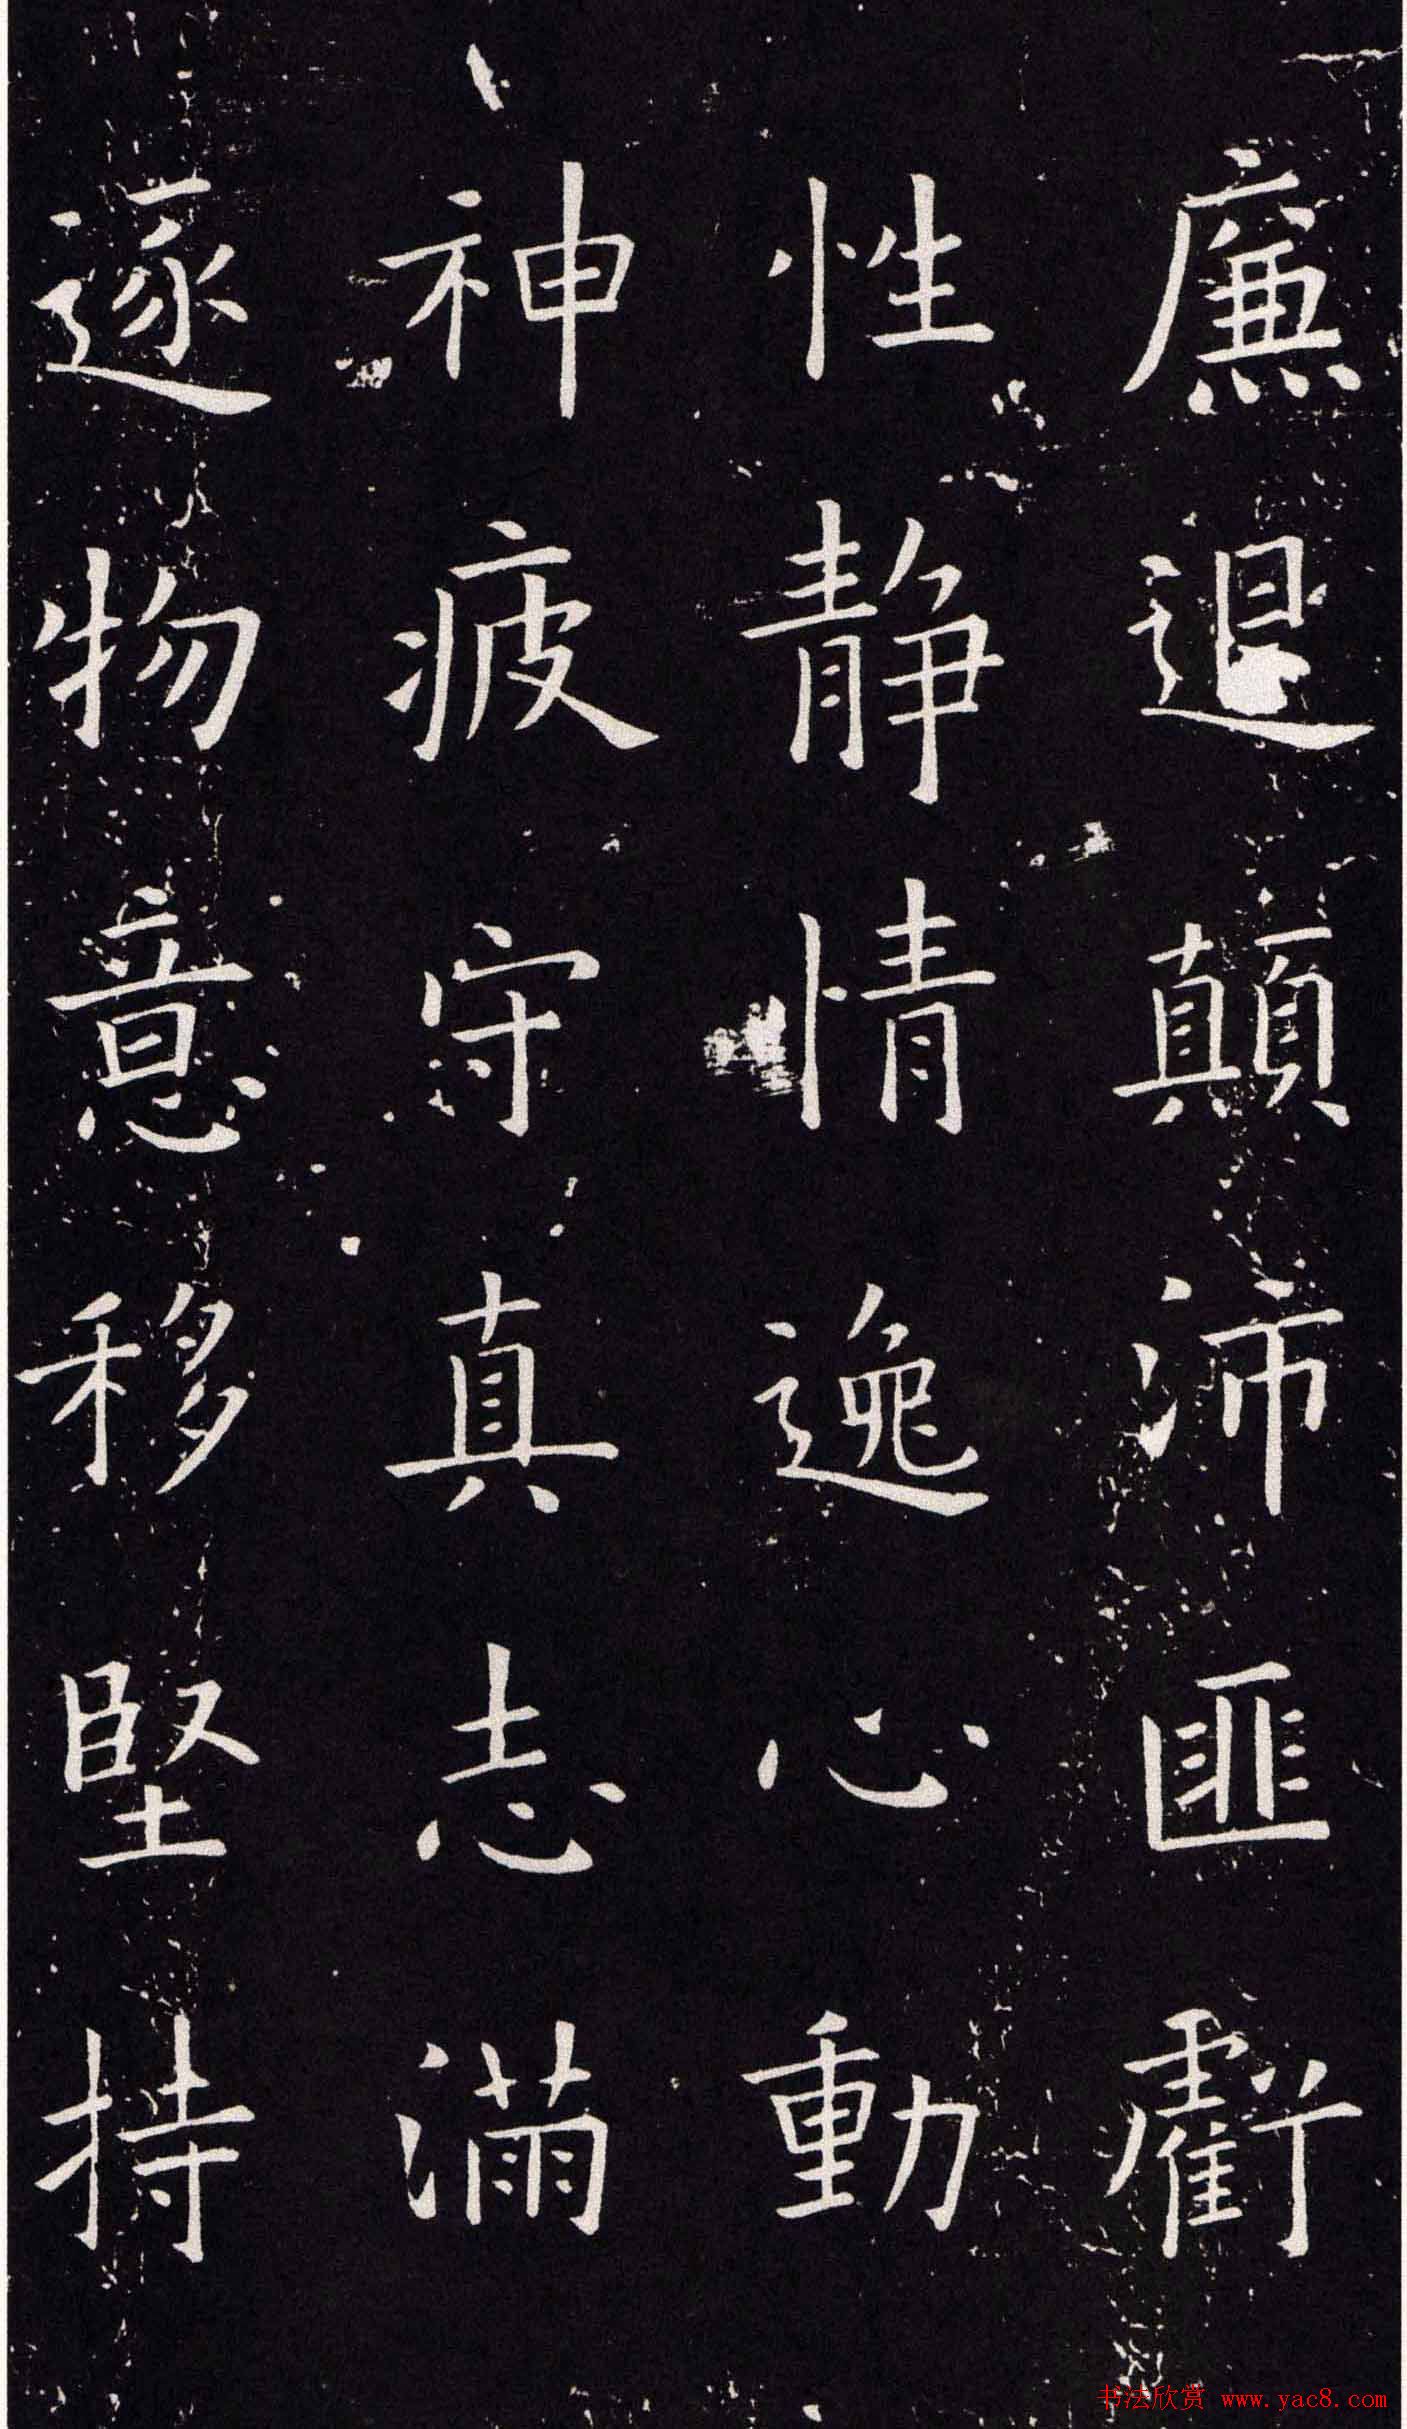 廉退顛沛匪虧
性静情逸心動
神疲守真志滿
逐物意移堅持
书法欣赏 www.yac8.com